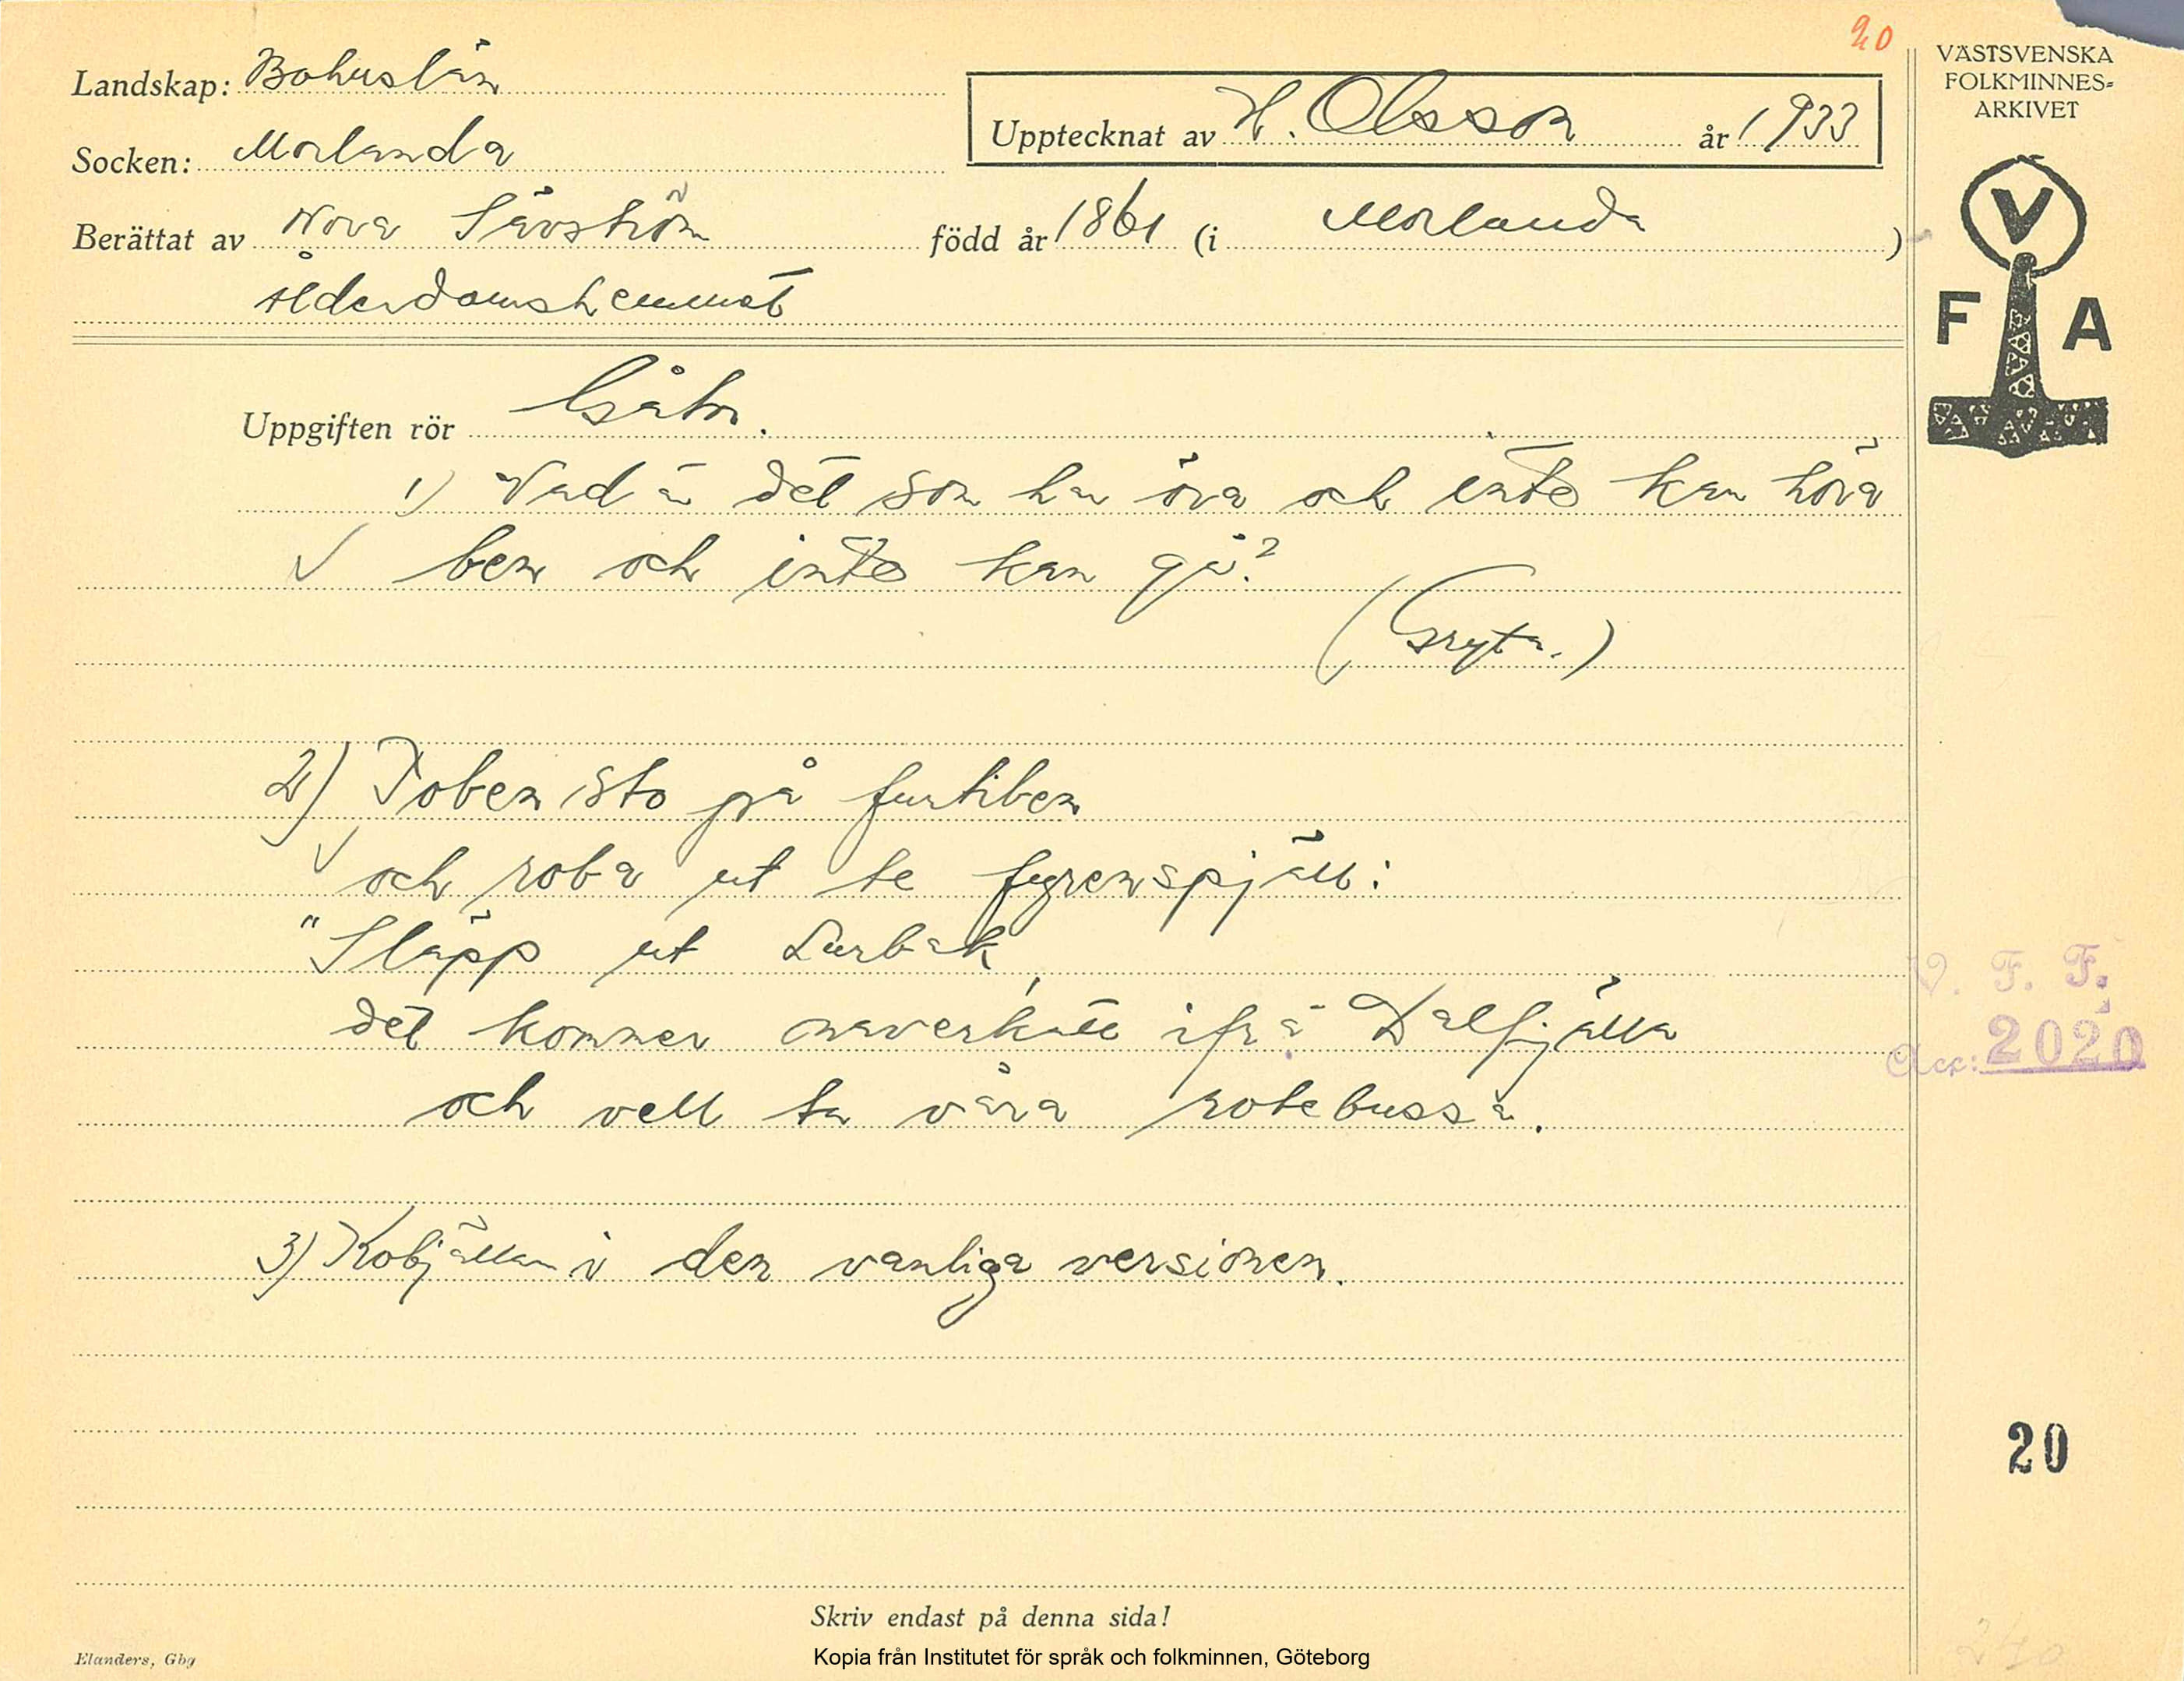 20
VÄSTSVENSKA
FOLKMINNES-
ARKIVET
Landskap: Bohuslän
Upptecknat av H. Olsson år 1933
Socken: Morlanda
Berättat av Nora Sävström född år 1861 (i Morlanda)
ålderdomshemmet
V
F A
Uppgiften rör Gåtor.
1) Vad är det som har öra och inte kan höra
ben och inte kan gå?
(Gryta.)
2) Toben sto på furtiben
och roba ut te fyrenspjäll:
"Släpp ut Lurbak,
det kommer ifrå Dalfjälla
och vell ta våra rotebussa.
3) Kobjällan i den vanliga versionen.
V. F. F.
Acc: 2020
20
Skriv endast på denna sida!
Elanders, Gbg
Kopia från Institutet för språk och folkminnen, Göteborg